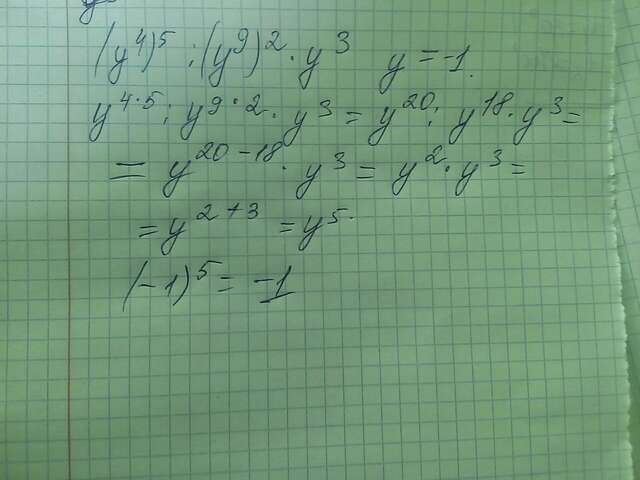 (y⁴)⁵ : (y⁹)² · y³ y = -1.
y⁴·⁵ : y⁹·² · y³ = y²⁰ : y¹⁸ · y³ =
= y²⁰⁻¹⁸ · y³ = y² · y³ =
= y²⁺³ = y⁵.
(-1)⁵ = -1